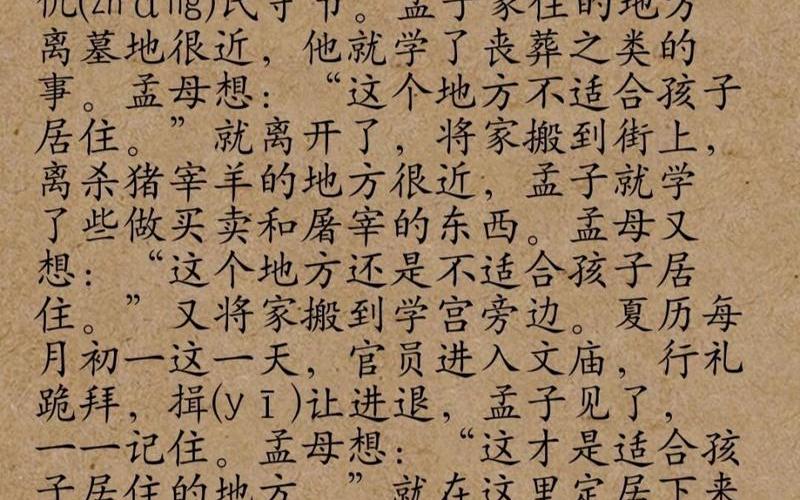 仉(zhǎng)氏守节。孟子家住的地方
离墓地很近，他就学了丧葬之类的
事。孟母想：“这个地方不适合孩子
居住。”就离开了，将家搬到街上，
离杀猪宰羊的地方很近，孟子就学
了些做买卖和屠宰的东西。孟母又
想：“这个地方还是不适合孩子居
住。”又将家搬到学宫旁边。夏历每
月初一这一天，官员进入文庙，行礼
跪拜，揖(yī)让进退，孟子见了，
一一记住。孟母想：“这才是适合孩
子居住的地方。”就在这里定居下来